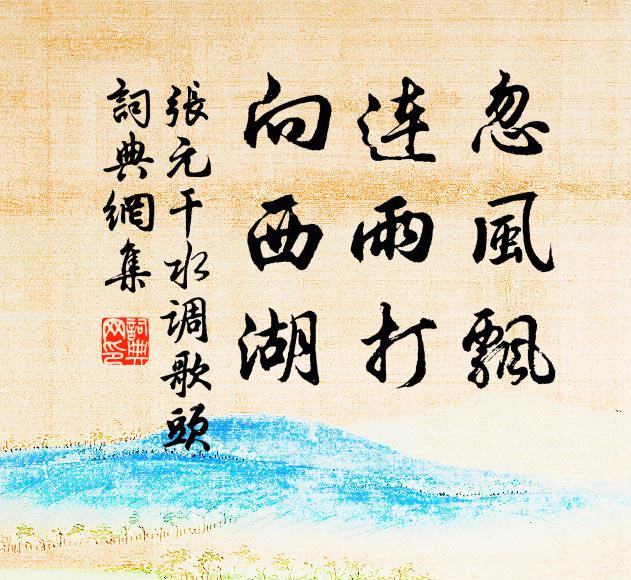 忽風飄
連雨打
向西湖
張元干水调歌頭
詞典網集
詞典
网印